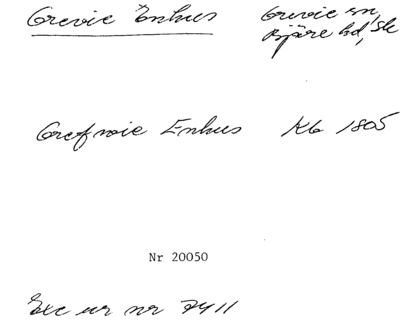 Grevie Enhus Grevie sn,
Bjäre hd, Sk
Grefwie Enhus Kb 1805
Nr 20050
Exc ur nr 7411